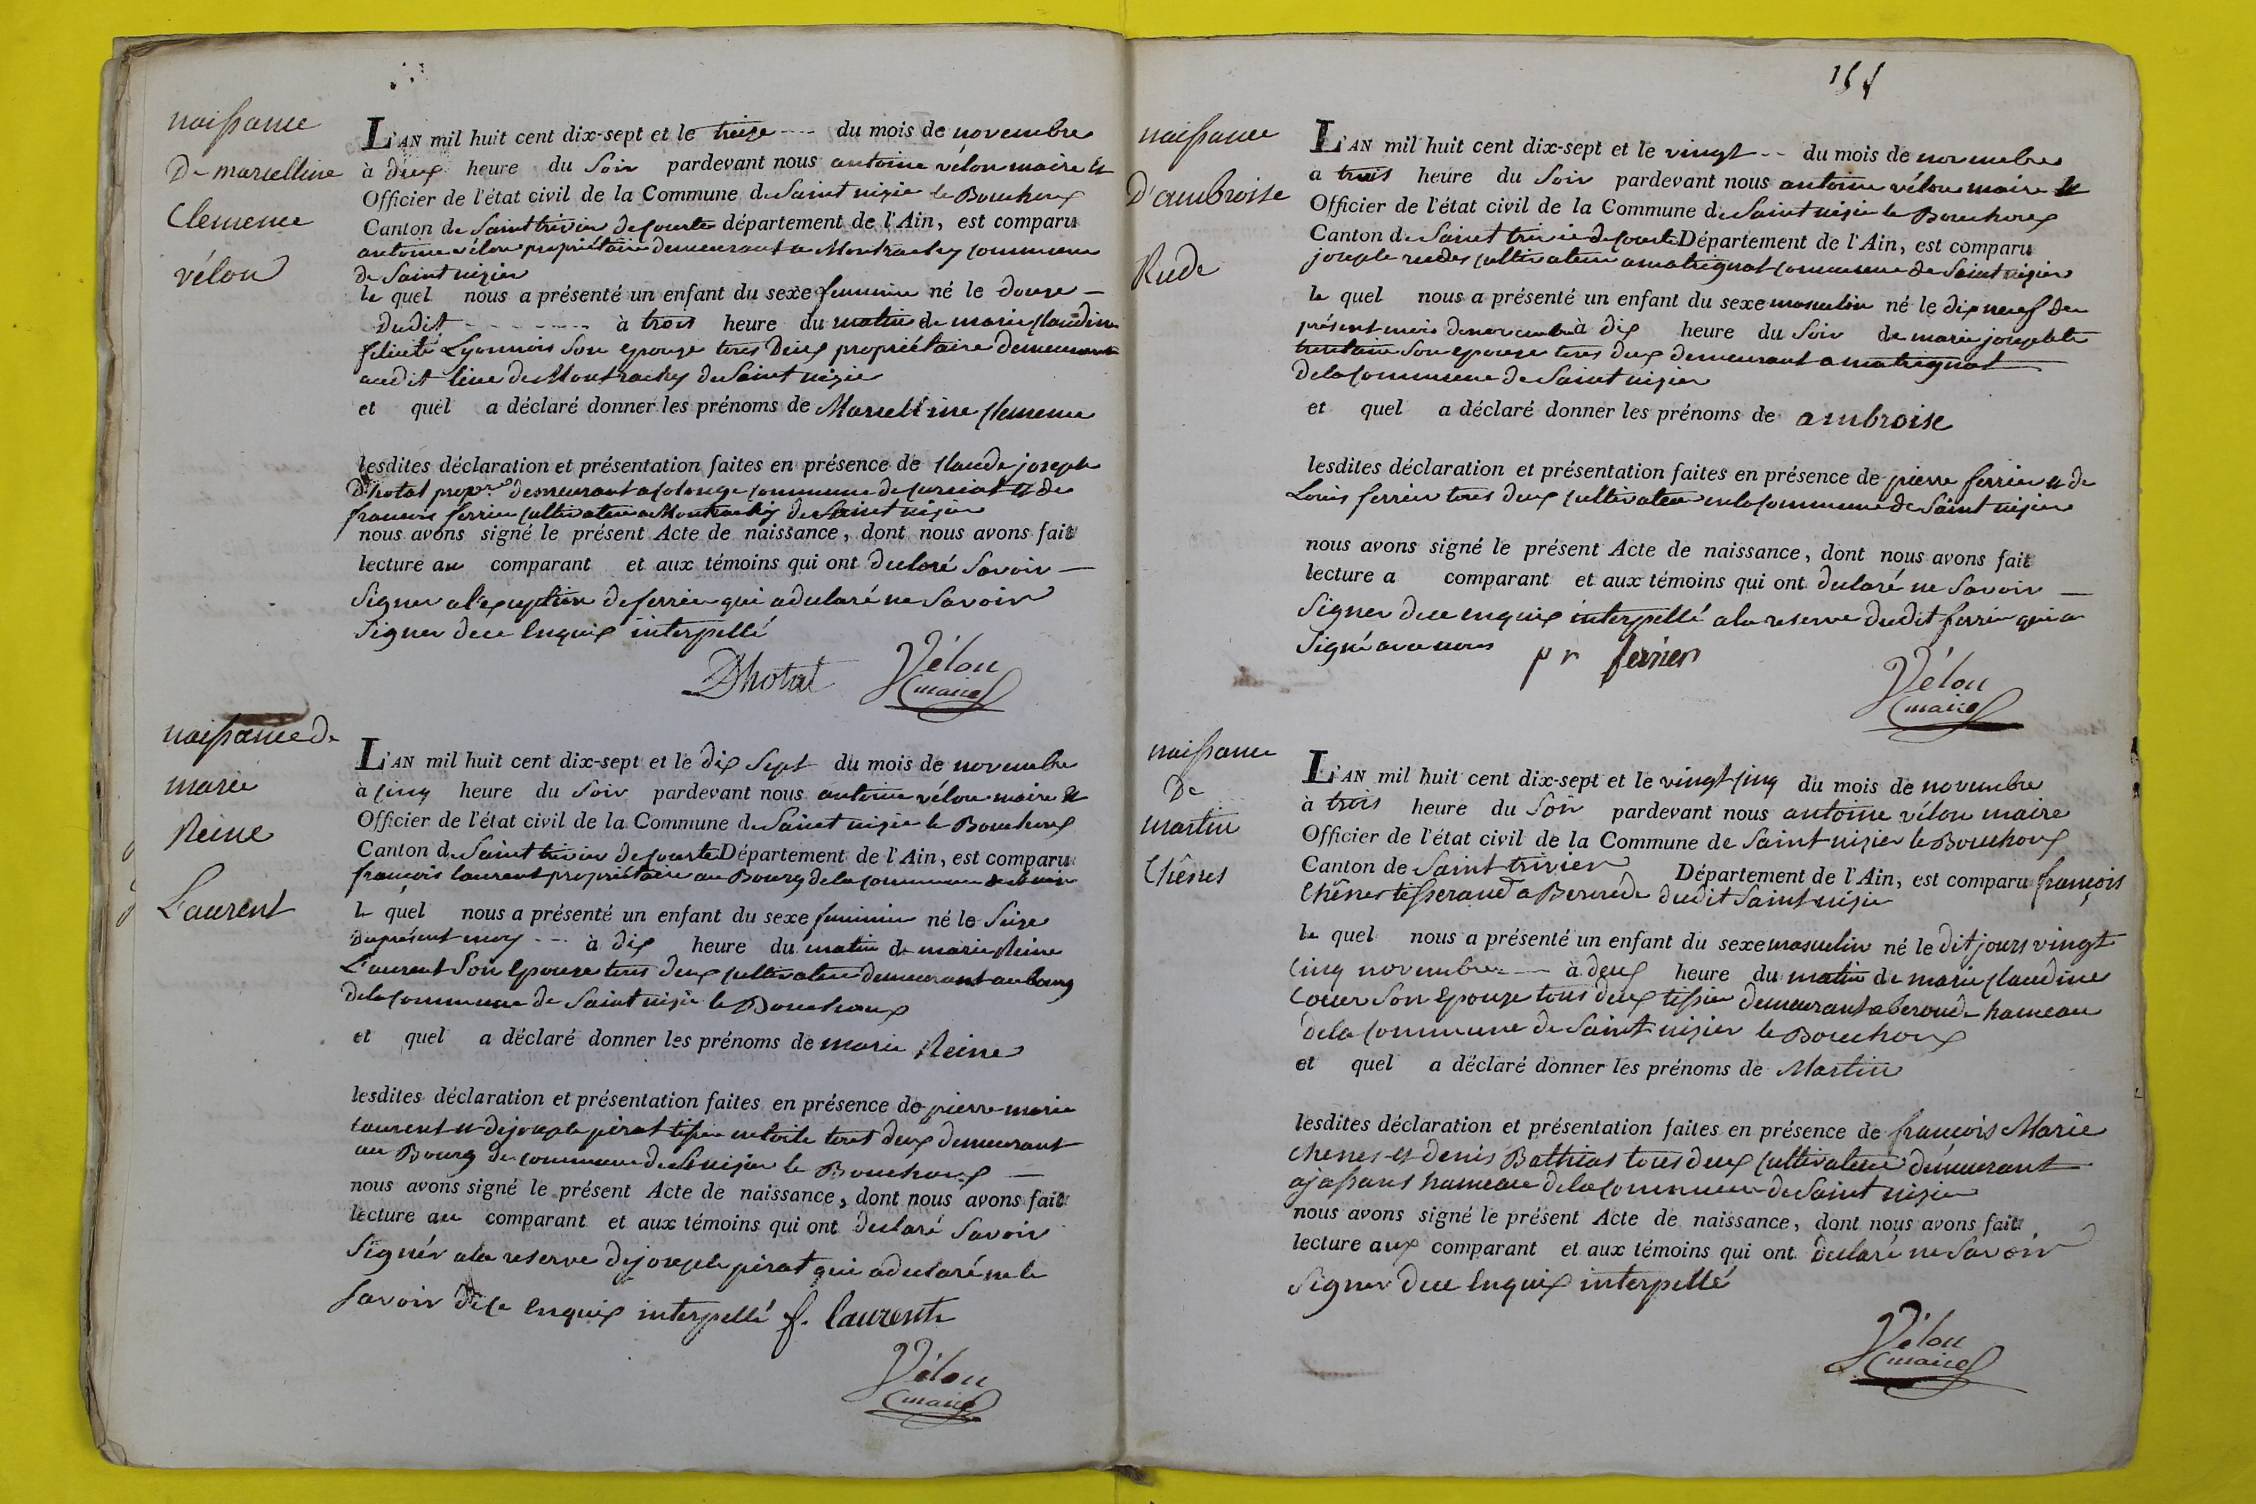 naissance
De marcelline
Clemence
vélon
L'AN mil huit cent dix-sept et le treize ---- du mois de novembre
à deux heure du Soir pardevant nous antoine vélon maire et
Officier de l'état civil de la Commune de Saint nizier le Bouchoux
Canton de Saint trivier de Courte département de l'Ain, est comparu
antoine vélon propriétaire demeurant a Montrachy commune
de Saint nizier
le quel nous a présenté un enfant du sexe feminin né le douze —
Dudit - - - - - à trois heure du matin de marie Claudine
felicité Lyonnois Son epouze tous Deux propriétaire demeurant
audit lieu de Montrachy de Saint nizier
et quel a déclaré donner les prénoms de Marcelline Clemence
lesdites déclaration et présentation faites en présence de Claude joseph
D'hotal propre demeurant a folonge commune de Curciat et de
francois ferrier Cultivateur a Montrachy de Saint nizier
nous avons signé le présent Acte de naissance, dont nous avons fait
lecture au comparant et aux témoins qui ont declaré Savoir —
Signer a l'exception de ferrier qui a declaré ne Savoir
Signer dece Enquix interpellé
Dhotal Vélon
maire
naissance de
marie
Reine
Laurent
L'AN mil huit cent dix-sept et le dix Sept du mois de novembre
à Cinq heure du Soir pardevant nous antoine vélon maire et
Officier de l'état civil de la Commune de Saint nizier le Bouchoux
Canton de Saint trivier de Courte Département de l'Ain, est comparu
françois laurent propriétaire au Bourg de la commune
le quel nous a présenté un enfant du sexe feminin né le Seize
Du présent moy --- à dix heure du matin de marie Reine
Laurent Son Epouze tous deux Cultivateur demeurant au bourg
de la Commune de Saint nizier le Bouchoux
et quel a déclaré donner les prénoms de marie Reine
lesdites déclaration et présentation faites en présence de pierre marie
Laurent et de joseph pirat tissier en toile tous deux demeurant
au Bourg de commune de St nizier le Bouchoux —
nous avons signé le présent Acte de naissance, dont nous avons fait
lecture au comparant et aux témoins qui ont declaré Savoir
Signér a la reserve de joseph pirat qui a declaré ne le
Savoir dece Enquix interpellé f. laurent
Vélon
maire
154
naissance
D'ambroise
Rude
L'AN mil huit cent dix-sept et le vingt -- du mois de novembre
a trois heure du Soir pardevant nous antoine vélon maire et
Officier de l'état civil de la Commune de Saint nizier le Bouchoux
Canton de Saint trivier de Courte Département de l'Ain, est comparu
joseph rudes Cultivateur a matrignat Commune de Saint nizier
le quel nous a présenté un enfant du sexe masculin né le dix neuf du
présent mois de novembre à dix heure du Soir de marie josephte
trontain Son epouze tous deux demeurant a matrignat
de la Commune de Saint nizier
et quel a déclaré donner les prénoms de ambroise
lesdites déclaration et présentation faites en présence de pierre ferrier et de
Louis ferrier tous deux Cultivateur en la Commune de Saint nizier
nous avons signé le présent Acte de naissance, dont nous avons fait
lecture a comparant et aux témoins qui ont declaré ne Savoir —
Signer dece enquix interpellé a la reserve dudit ferrier qui a
Signé avec nous pr ferrier
Vélon
maire
naissance
De
martin
Chênes
L'AN mil huit cent dix-sept et le vingt Cinq du mois de novembre
à trois heure du Soir pardevant nous antoine vélon maire
Officier de l'état civil de la Commune de Saint nizier le Bouchoux
Canton de Saint trivier Département de l'Ain, est comparu françois
Chênes tisserand a dudit Saint nizier
le quel nous a présenté un enfant du sexe masculin né le dit jours vingt
Cinq novembre --- à deux heure du matin de marie Claudine
Couer Son Epouze tous deux tissier demeurant a beroude hameau
de la Commune de Saint nizier le Bouchoux
et quel a déclaré donner les prénoms de Martin
lesdites déclaration et présentation faites en présence de françois Marie
chenes et denis Bathias tous deux Cultivateur demeurant
a jassans hameau de la Commune de Saint nizier
nous avons signé le présent Acte de naissance, dont nous avons fait
lecture aux comparant et aux témoins qui ont declaré ne Savoir
Signer dece Enquix interpellé
Vélon
maire